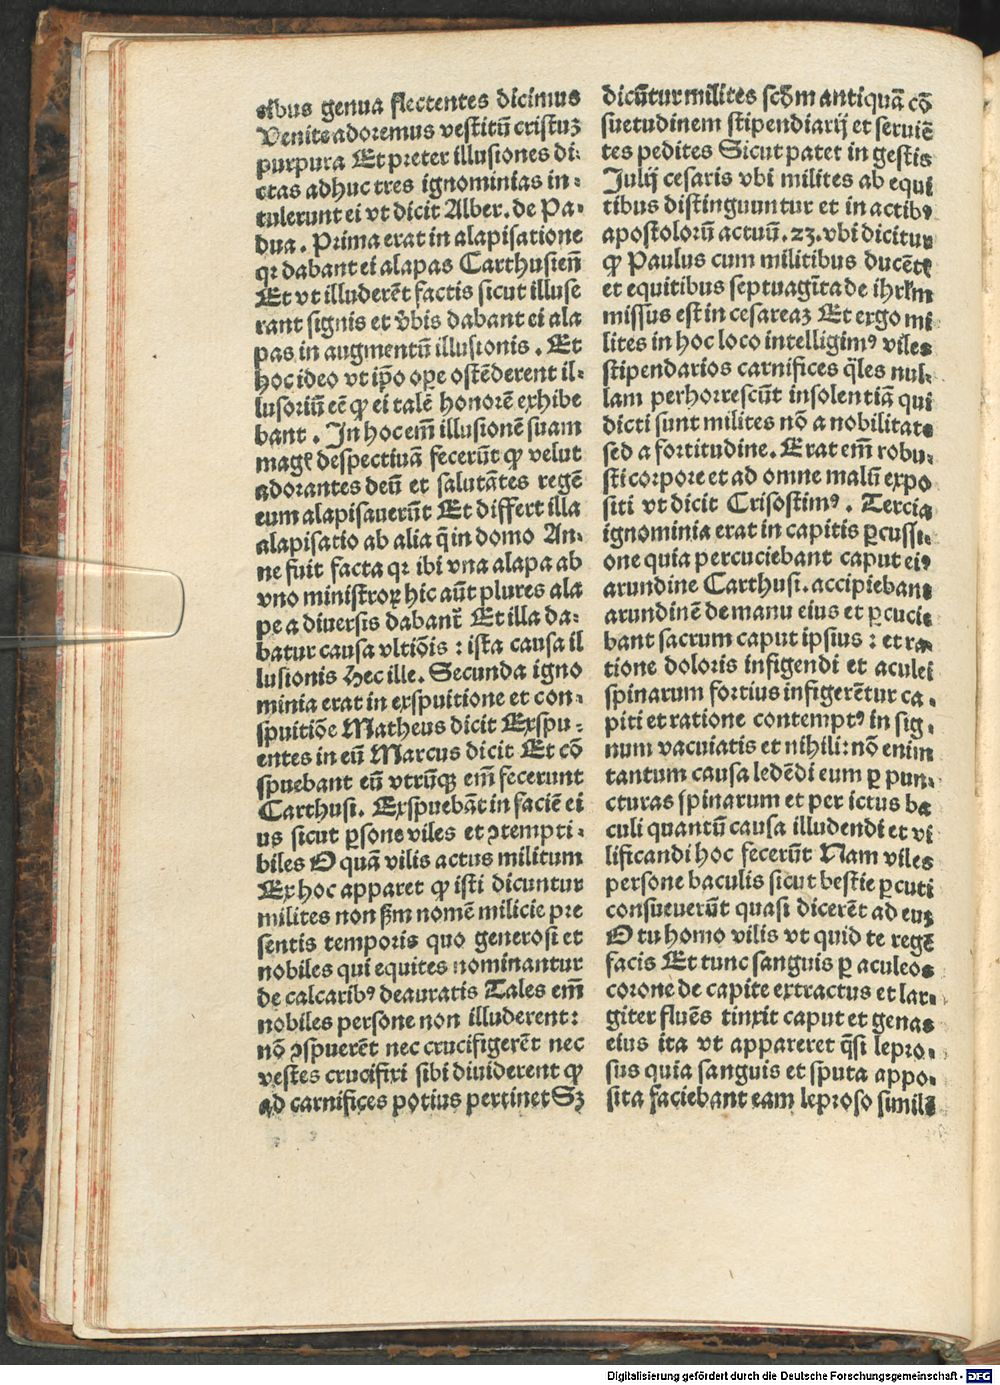 cibus genua flectentes dicimus
Venite adoremus vestitū cristuꝫ
purpura Et preter illusiones di-
ctas adhuc tres ignominias in-
tulerunt ei vt dicit Alber. de Pa-
dua. Prima erat in alapisatione
qꝛ dabant ei alapas Carthusien̄
Et vt illuderēt factis sicut illuse
rant signis et v̄bis dabant ei ala
pas in augmentū illusionis. Et
hoc ideo vt ip̄o oꝑe ostēderent il-
lusoriū eē ꝙ ei talē honorē exhibe
bant. In hoc em̄ illusionē suam
mage despectiuā fecerūt ꝙ velut
adorantes deū et salutātes regē
eum alapisauerūt Et differt illa
alapisatio ab alia q̄ in domo An-
ne fuit facta qꝛ ibi vna alapa ab
vno ministroꝝ hic aūt plures ala
pe a diuersis dabant᷑ Et illa da-
batur causa vltiōis : ista causa il
lusionis Hec ille. Secunda igno
minia erat in exspuitione et con-
spuitiōe Matheus dicit Exspu-
entes in eū Marcus dicit Et cō
spuebant eū vtrūqꝫ em̄ fecerunt
Carthusi. Exspuebāt in faciē ei
us sicut ꝑsone viles et ꝯtempti-
biles O quā vilis actus militum
Ex hoc apparet ꝙ isti dicuntur
milites non ẜm nomē milicie pre
sentis temporis quo generosi et
nobiles qui equites nominantur
de calcaribꝰ deauratis Tales em̄
nobiles persone non illuderent:
nō ꝯspuerēt nec crucifigerēt nec
vestes crucifixi sibi diuiderent ꝙ
ad carnifices potius pertinet Sꝫ
dicūtur milites scd̄m antiquā cō
suetudinem stipendiarij et seruiē
tes pedites Sicut patet in gestis
Julij cesaris vbi milites ab equi
tibus distinguuntur et in actibꝰ
apostolorū actuū. 23. vbi dicitur
ꝙ Paulus cum militibus ducēt
et equitibus septuagīta de ihrl̄m
missus est in cesareaꝫ Et ergo mi
lites in hoc loco intelligimꝰ viles
stipendarios carnifices q̄les nul-
lam perhorrescūt insolentiā qui
dicti sunt milites nō a nobilitate
sed a fortitudine. Erat em̄ robu-
sti corpore et ad omne malū expo
siti vt dicit Crisostimꝰ. Tercia
ignominia erat in capitis ꝑcussi-
one quia percuciebant caput eiꝰ
arundine Carthusi. accipiebant
arundinē de manu eius et ꝑcucie
bant sacrum caput ipsius : et ra-
tione doloris infigendi et aculei
spinarum fortius infigerētur ca-
piti et ratione contemptꝰ in sig-
num vacuiatis et nihili: nō enim
tantum causa ledēdi eum ꝑ pun-
cturas spinarum et per ictus ba
culi quantū causa illudendi et vi
lificandi hoc fecerūt Nam viles
persone baculis sicut bestie ꝑcuti
consueuerūt quasi dicerēt ad euꝫ
O tu homo vilis vt quid te regē
facis Et tunc sanguis ꝑ aculeos
corone de capite extractus et lar-
giter fluēs tinxit caput et genas
eius ita vt appareret q̄si lepro-
sus quia sanguis et sputa appo-
sita faciebant eam leproso simile
Digitalisierung gefördert durch die Deutsche Forschungsgemeinschaft - DFG